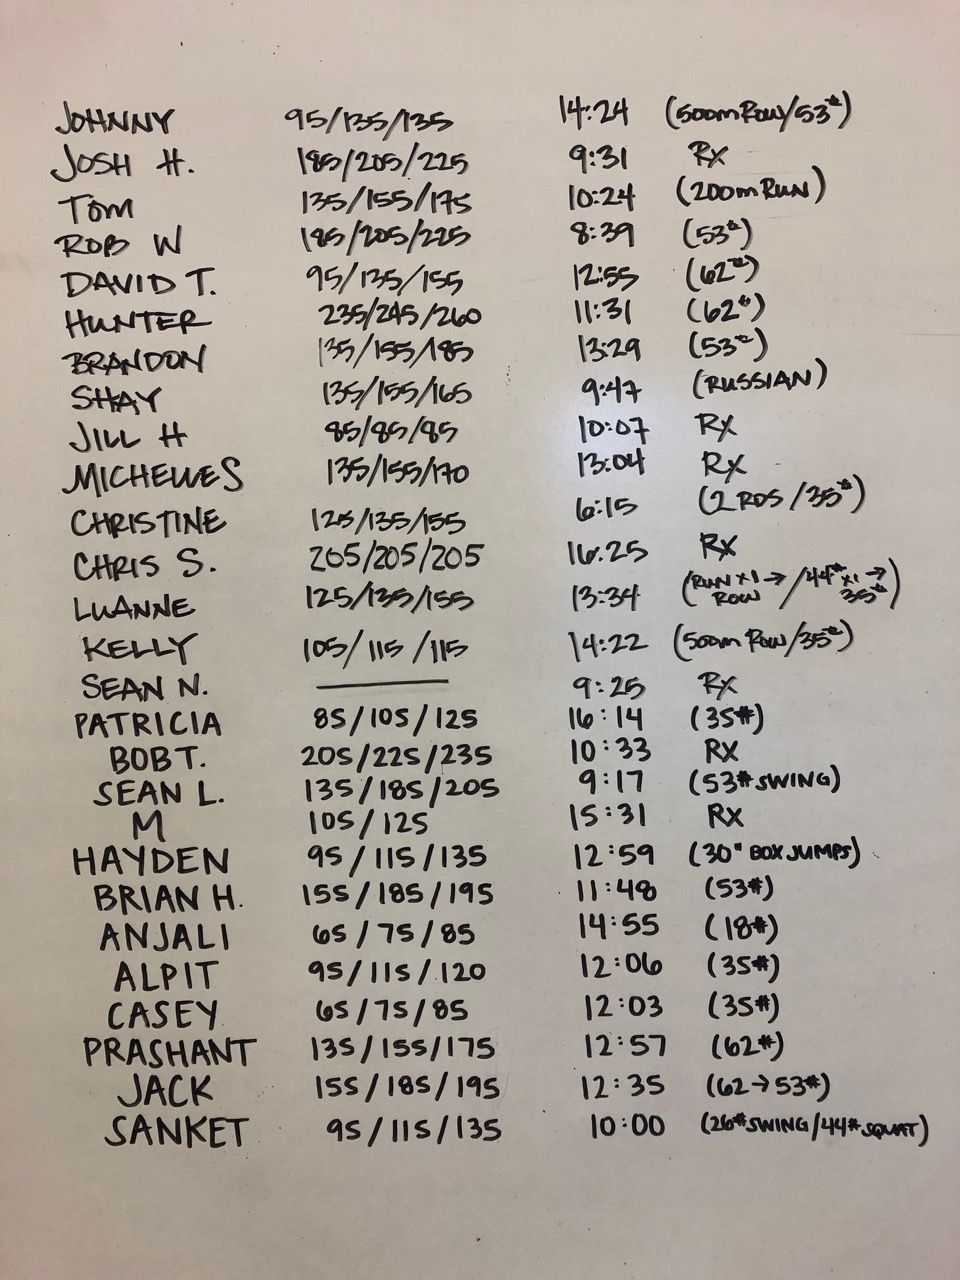 JOHNNY 95/135/135 14:24 (500m ROW/53#)
JOSH H. 185/205/225 9:31 RX
TOM 135/155/175 10:24 (200m RUN)
ROB W 185/205/225 8:39 (53#)
DAVID T. 95/135/155 12:55 (62#)
HUNTER 235/245/260 11:31 (62#)
BRANDON 135/155/185 13:29 (53#)
SHAY 135/155/165 9:47 (RUSSIAN)
JILL H 85/85/85 10:07 RX
MICHELLE S 135/155/170 13:04 RX
CHRISTINE 125/135/155 6:15 (2 RDS/35#)
CHRIS S. 205/205/205 16:25 RX
LUANNE 125/135/155 13:34 (RUN x1 → ROW/44# x1 → 35#)
KELLY 105/115/115 14:22 (500m ROW/35#)
SEAN N. 9:25 RX
PATRICIA 85/105/125 16:14 (35#)
BOB T. 205/225/235 10:33 RX
SEAN L. 135/185/205 9:17 (53# SWING)
M 105/125 15:31 RX
HAYDEN 95/115/135 12:59 (30" BOX JUMPS)
BRIAN H. 155/185/195 11:48 (53#)
ANJALI 65/75/85 14:55 (18#)
ALPIT 95/115/120 12:06 (35#)
CASEY 65/75/85 12:03 (35#)
PRASHANT 135/155/175 12:57 (62#)
JACK 155/185/195 12:35 (62→53#)
SANKET 95/115/135 10:00 (26# SWING/44# SQUAT)